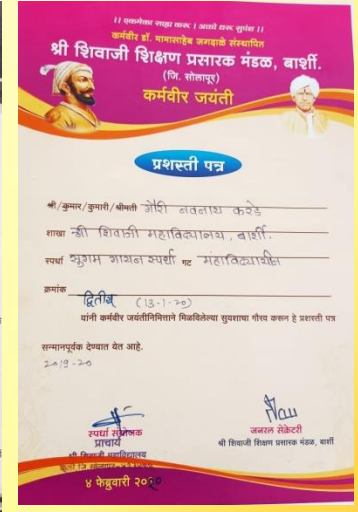 ।। एकमेका साह्य करू । अवघे धरू सुपंथ ।।
कर्मवीर डॉ. मामासाहेब जगदाळे संस्थापित
श्री शिवाजी शिक्षण प्रसारक मंडळ, बार्शी.
(जि. सोलापूर)
कर्मवीर जयंती
प्रशस्ती पत्र
श्री/कुमार/कुमारी/श्रीमती गौरी नवनाथ करडे
शाखा श्री शिवाजी महाविद्यालय, बार्शी.
स्पर्धा सुगम गायन स्पर्धा गट महाविद्यालयीन
क्रमांक
द्वितीय (13-1-20)
यांनी कर्मवीर जयंतीनिमित्ताने मिळविलेल्या सुयशाचा गौरव करून हे प्रशस्ती पत्र
सन्मानपूर्वक देण्यात येत आहे.
2019-20
स्पर्धा संयोजक
प्राचार्य
श्री शिवाजी महाविद्यालय
जनरल सेक्रेटरी
श्री शिवाजी शिक्षण प्रसारक मंडळ, बार्शी
४ फेब्रुवारी २०२०